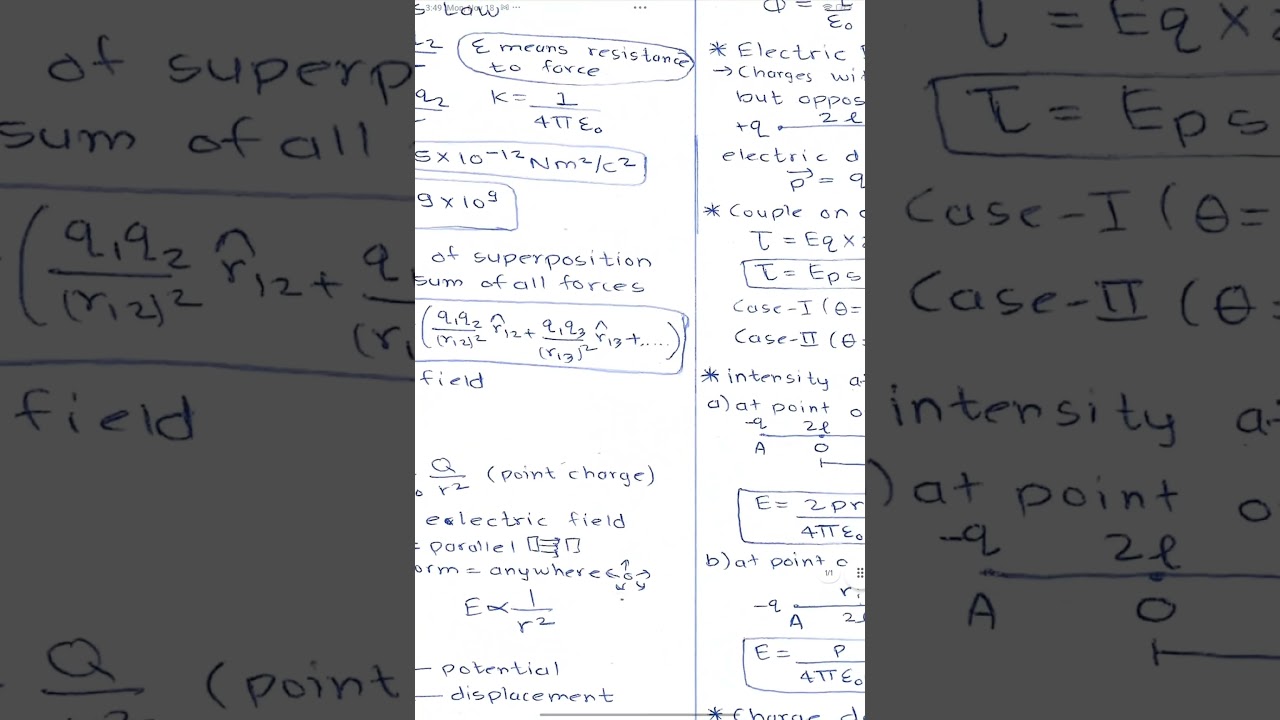 3:49 Mon Nov 18
s Law
ε means resistance
to force
q2
K = 1
4πε₀
5×10⁻¹² Nm²/c²
9×10⁹
of superposition
sum of all forces
(q₁q₂/(r₁₂)² r̂₁₂ + q₁q₃/(r₁₃)² r̂₁₃ + .....)
field
Q/r² (point charge)
eelectric field
= parallel
orm = anywhere
E ∝ 1/r²
— potential
— displacement
Φ = 
ε₀
* Electric
→ Charges wi
but oppos
+q 2l
electric d
p⃗ = q
* Couple on
τ = Eq ×
τ = Eps
Case-I (θ=
Case-II (θ=
* intensity a
a) at point o
-q 2l
A O
E = 2pr
4πε₀
b) at point
1/1
-q r₁
A 2l
E = p
4πε₀
* Charge d
of superp
sum of all
(q₁q₂/(r₁₂)² r̂₁₂ + q
(r₁
field
Q (point
τ = Eq ×
τ = Eps
Case-I (θ=
Case-II (θ=
intensity a
) at point o
-q 2l
A O